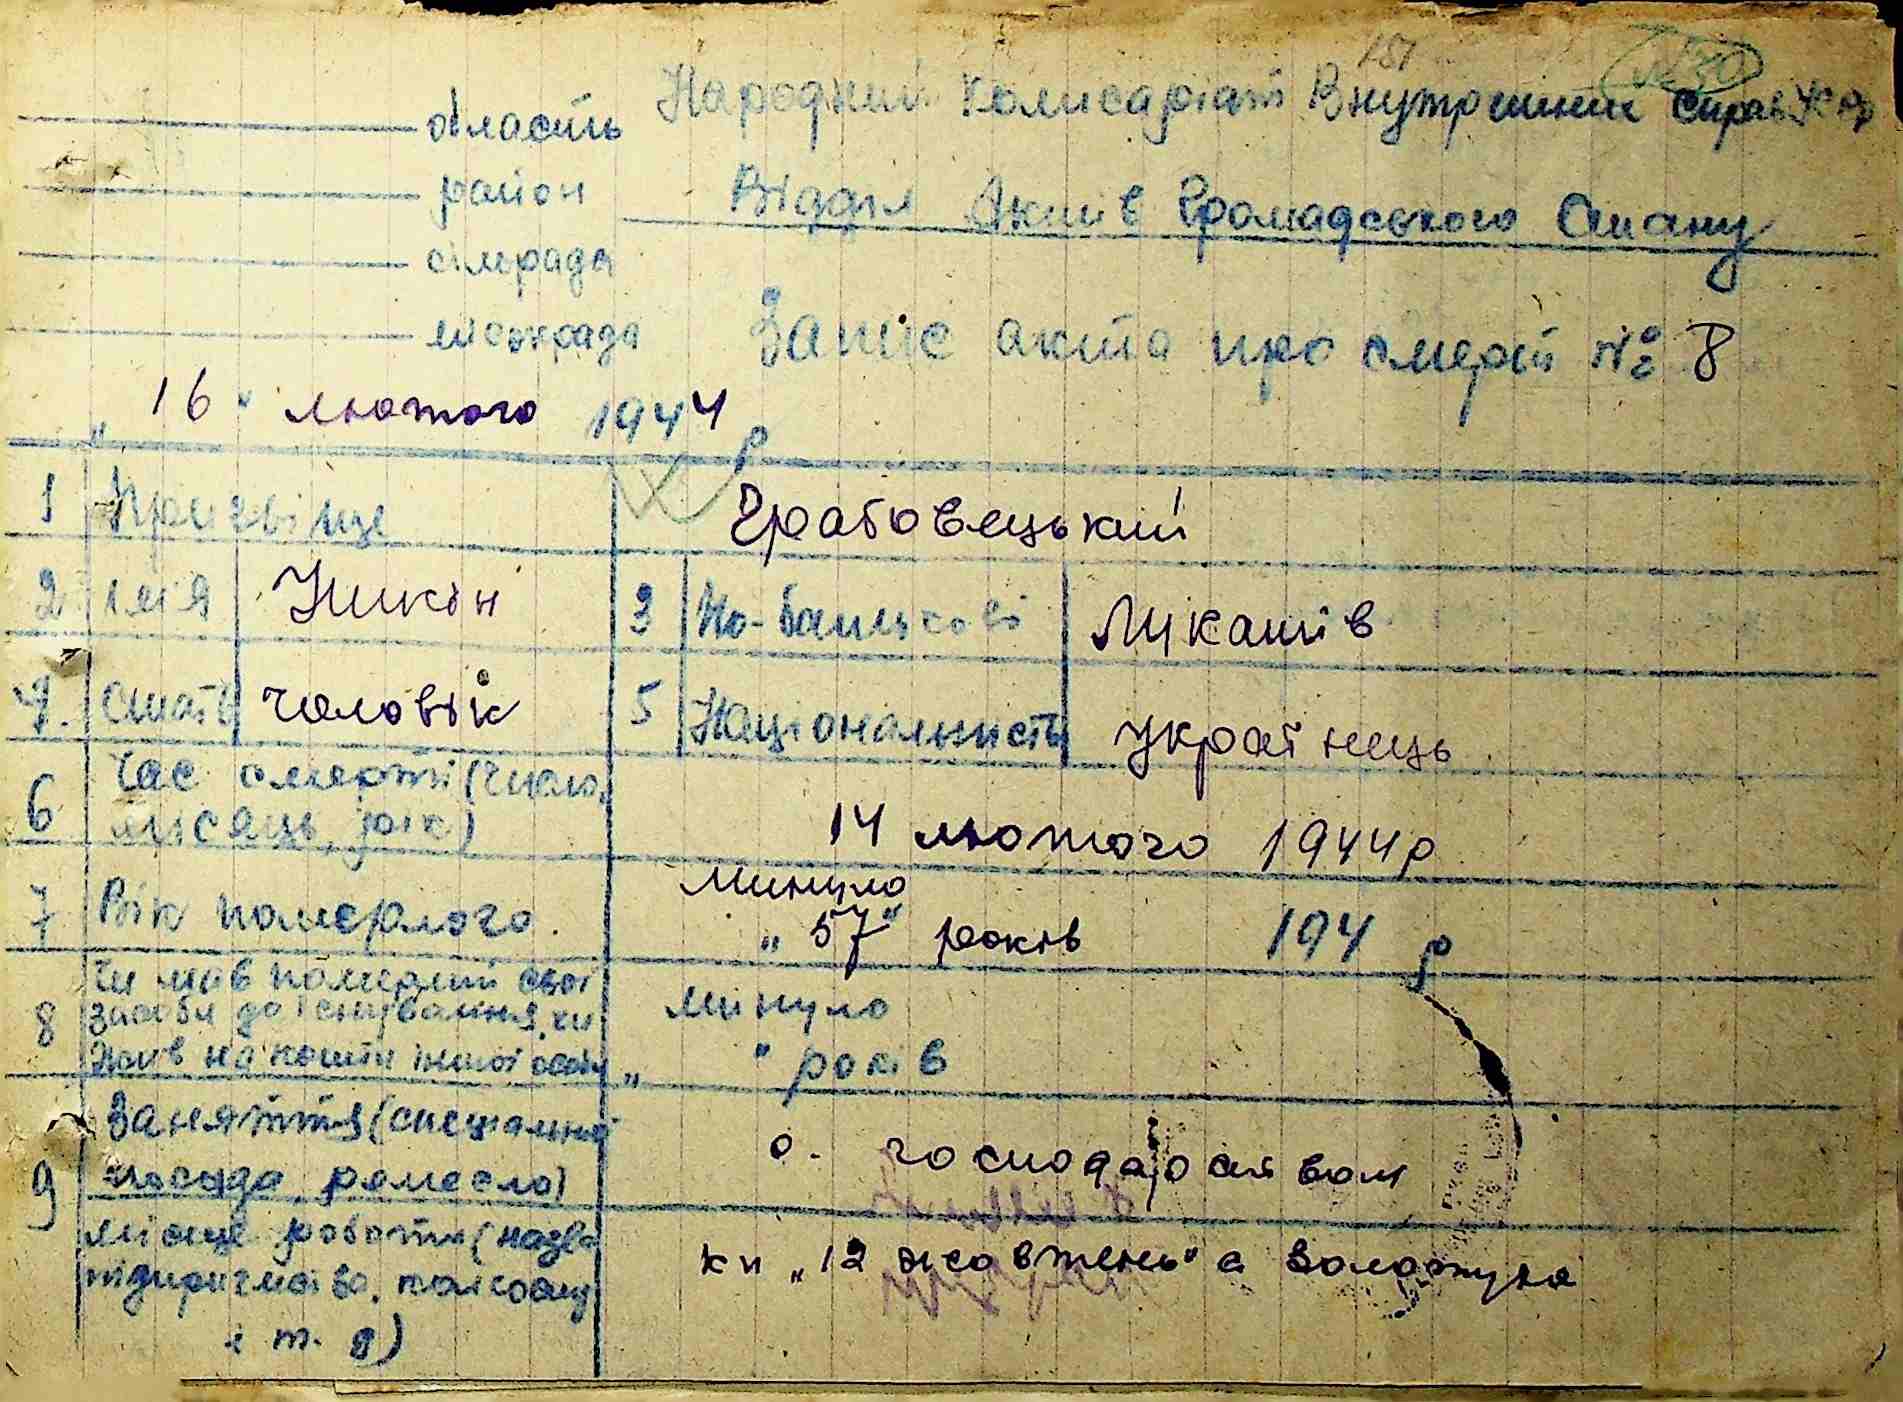 181
1230
Народний Комисаріат Внутрошних справ УССР
область
район
Відділ Актів Громадського Стану
сільрада
міськрада
Запис акта про смерть № 8
"16" лютого 1944 р
1 Призвіще Грабовецький
2 імя Никон 3 По-батькові Лукашів
4. Стать чоловік 5 Національність Українець
6 Час смерті (число, місяць, рік)
14 лютого 1944 р
7 Вік померлого.
минуло
"57" років 194 р
8 Чи мав померлий свої
засоби до існування, чи
жив на кошти іншої особи
минуло
" " років
9 Заняття (спеціальні
посада, ремесло)
о. господарством
місце роботи (назва
підприємства, колгоспу
і т. д)
кп "12 жовтень" с